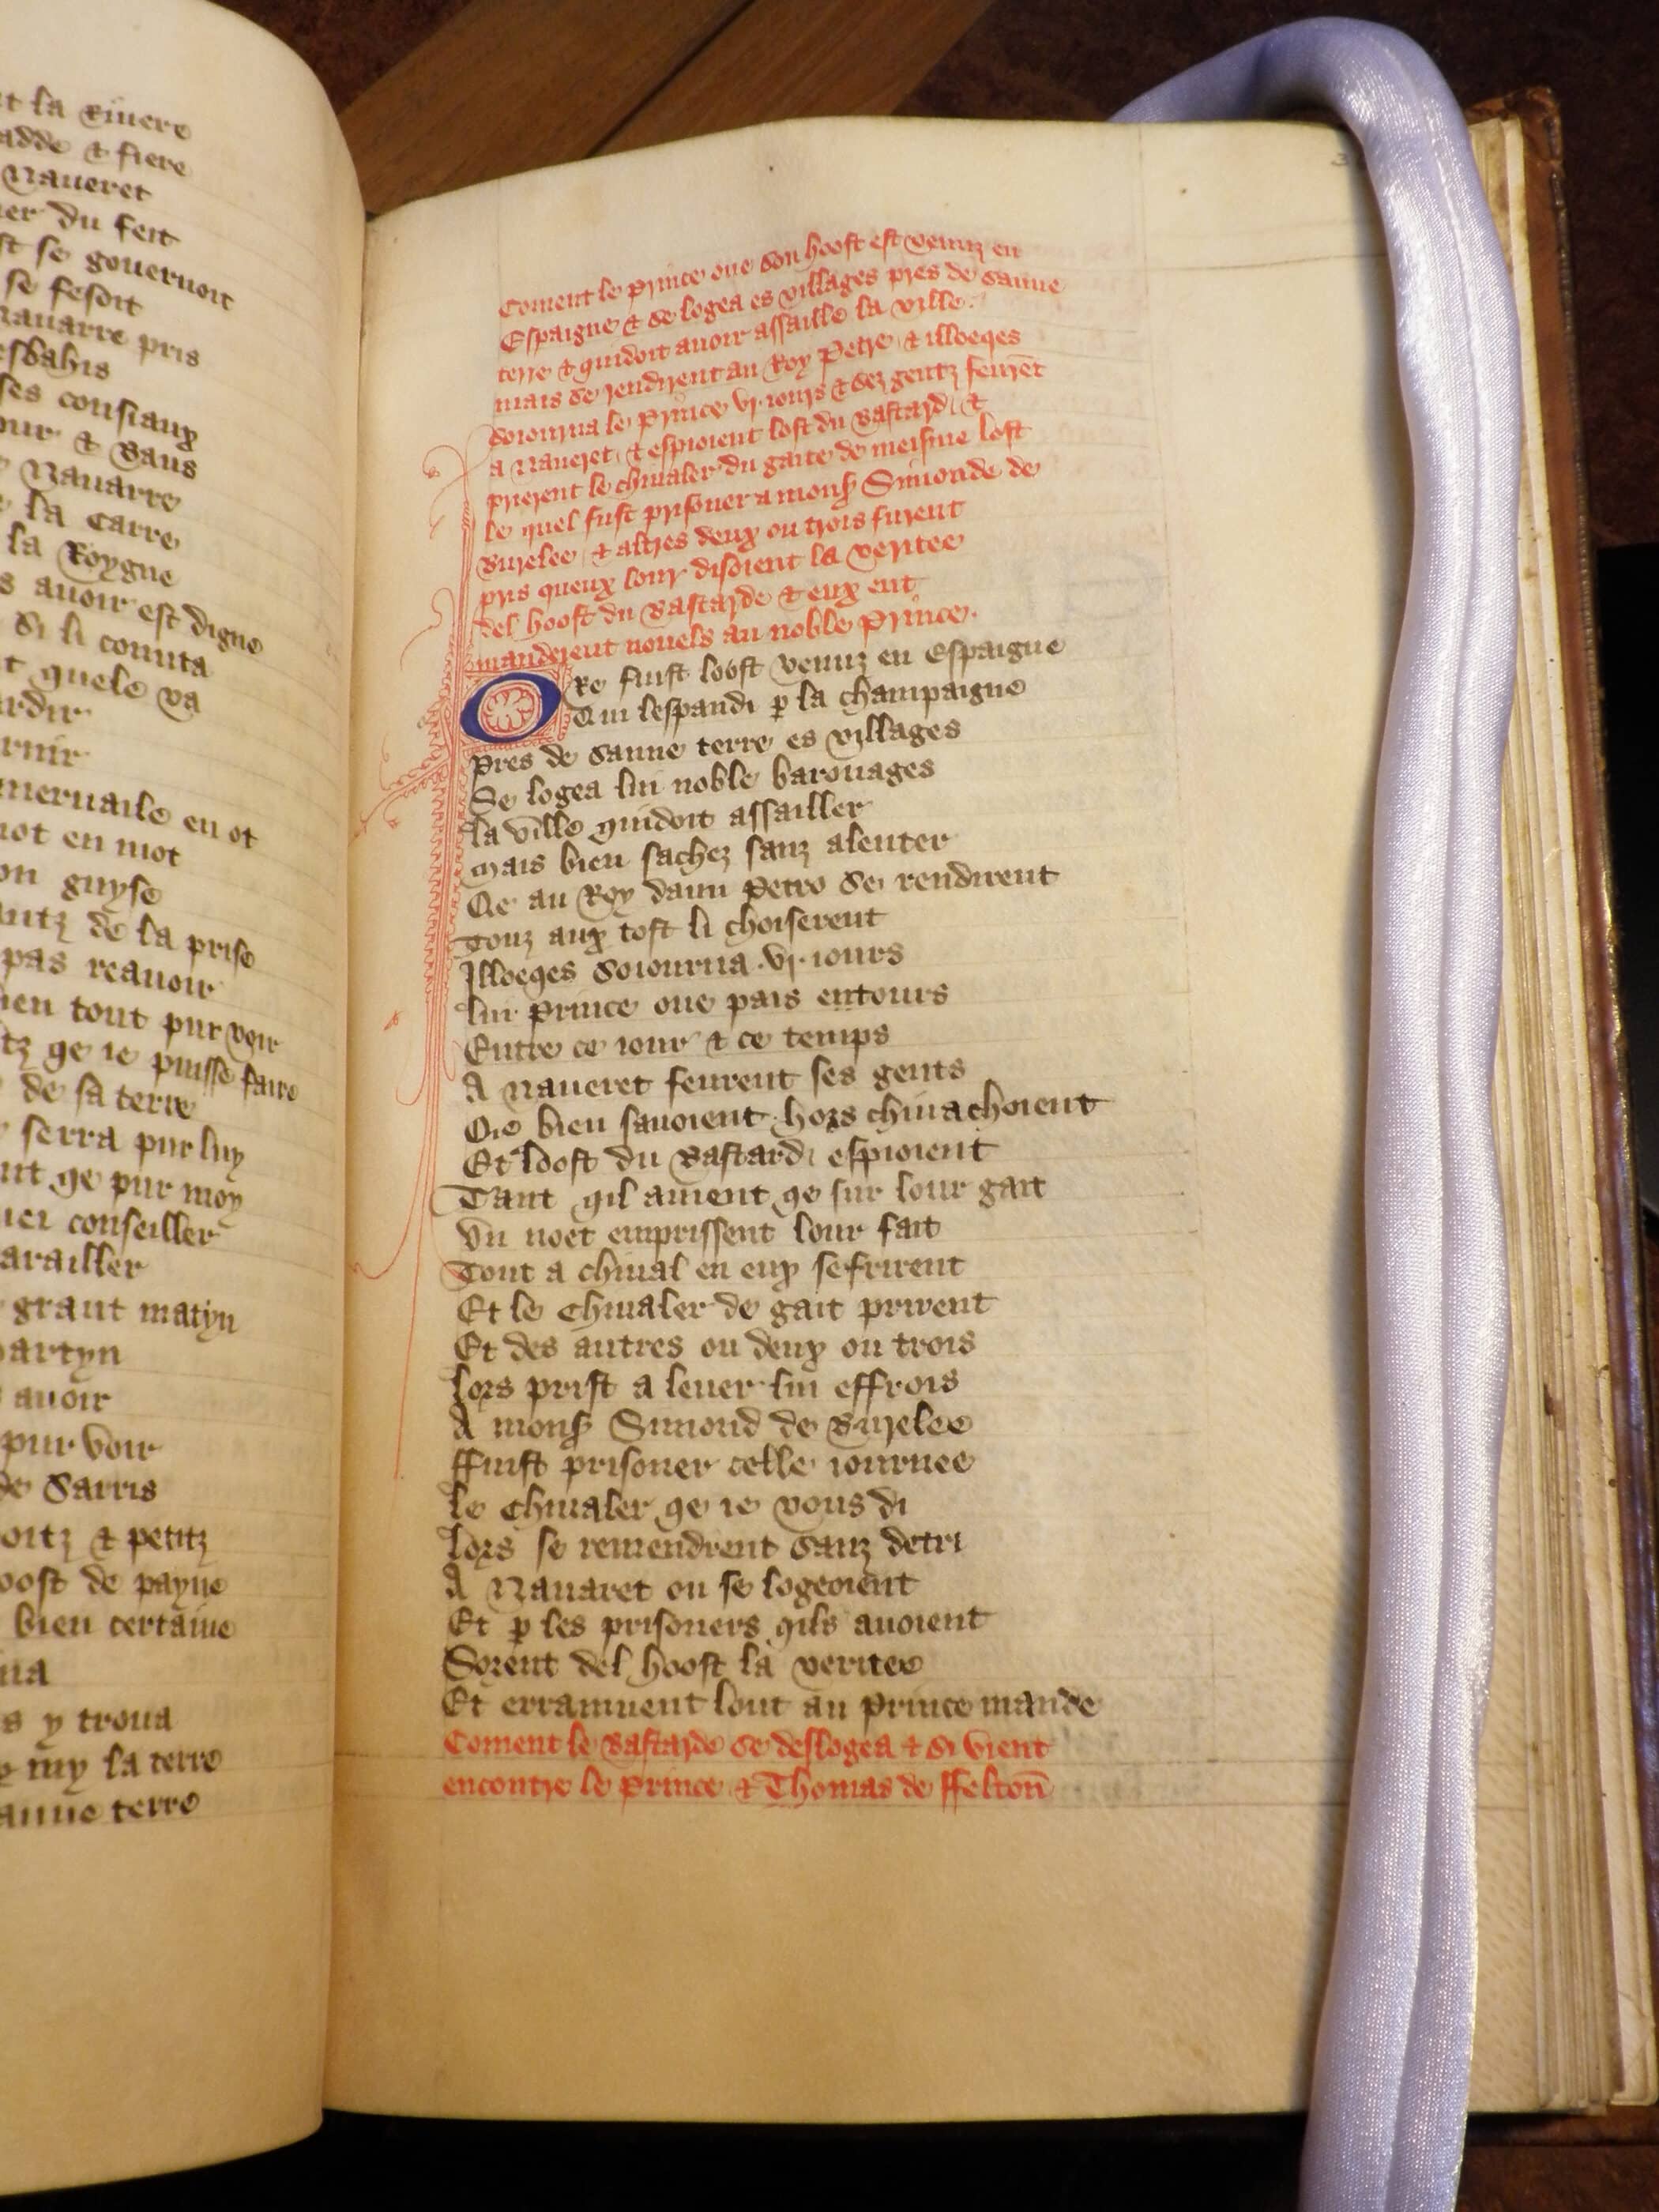 t la Riuere
adde & fiere
Naueret
er du feit
st se gouernoit
se fesoit
nauarre pris
esbahis
ses consiaux
our & Baus
Nauarre
la Carre
la Roygne
s auoir est digne
Si li counta
t quele va
ardir
rnir
meruaile en ot
mot en mot
on guyse
antz de la prise
pas reauoir
ien tout pur voir
tz qe ie puisse faire
de sa terre
serra pur luy
nt qe pur moy
ier conseiller
arailler
grant matyn
artyn
auoir
pur voir
de Sarris
oitz & petitz
oost de payne
bien certaine
na
s y troua
my la terre
anne terre
Coment le Prince oue son hoost est venuz en
Espaigne & se logea es villages pres de Saune
terre & quidoit auoir assaille la ville.
mais se rendirent au Roy Petre & illoeqes
soiourna le Prince vj. iours & sez gentz feurēt
a Naueret & espioient lost du Bastard &
prierent le chiualer du gaite de meisme lost
le quel fust prisoner a monsʳ Simonde de
Burelee & altres deux ou trois furent
pris queux lour disoient la veritee
del hoost du Bastarde & eux ent
manderent nouels au noble Prince.
Ore fuist loost venuz en Espaigne
Qui lespandi ꝑ la champaigne
Pres de Saune terre es villages
Se logea lui noble barouages
la ville quidoit assailler
Mais bien sachez sanz alenter
Qe au Roy daun Petro se rendirent
Touz aux tost li choiserent
Illoeqes soiourna .vj. iours
lui Prince oue pais entours
Entre ce iour & ce temps
A Naueret feurent ses gents
Qe bien sauoient hors chiuachoient
Et loost du Bastard espioient
Tant qil auient qe sur lour gait
Vn noet emprissent lour fait
Tout a chiual en eux se frirent
Et le Chiualer de gait prirent
Et des autres ou deux ou trois
lors prist a leuer lui effrois
A monsʳ Simond de Burelee
ffuist prisoner celle iournee
le Chiualer qe ie vous di
lors se remendrent sanz detri
A Nauaret ou se logeoient
Et ꝑ les prisoners qils auoient
Sorent del hoost la veritee
Et erramment lont au Prince mande
Coment le Bastarde se deslogea & si vient
encontre le Prince & Thomas de ffeltoñ